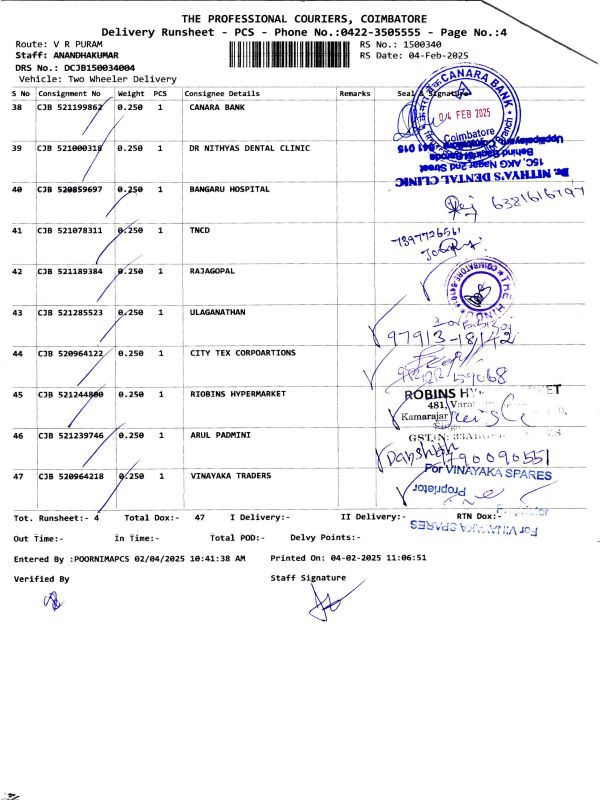 THE PROFESSIONAL COURIERS, COIMBATORE
Delivery Runsheet - PCS - Phone No.:0422-3505555 - Page No.:4
Route: V R PURAM RS No.: 1500340
Staff: ANANDHAKUMAR RS Date: 04-Feb-2025
DRS No.: DCJB150034004
Vehicle: Two Wheeler Delivery
S No Consignment No Weight PCS Consignee Details Remarks Seal & Signature
38 CJB 521199862 0.250 1 CANARA BANK
CANARA BANK
04 FEB 2025
Coimbatore
39 CJB 521000318 0.250 1 DR NITHYAS DENTAL CLINIC
Dr. NITHYA'S DENTAL CLINIC
15C, AKG Nagar 2nd Street
Behind Bank of Baroda
Uppilipalayam
641 015
40 CJB 520859697 0.250 1 BANGARU HOSPITAL
6381616797
41 CJB 521078311 0.250 1 TNCD
7397726561
42 CJB 521189384 0.250 1 RAJAGOPAL
THE HINDU
COIMBATORE
43 CJB 521285523 0.250 1 ULAGANATHAN
97913-18142
44 CJB 520964122 0.250 1 CITY TEX CORPOARTIONS
45 CJB 521244800 0.250 1 RIOBINS HYPERMARKET
ROBINS HY RKET
481, Vara
Kamarajar
46 CJB 521239746 0.250 1 ARUL PADMINI
GSTIN: 33A
790090551
47 CJB 520964218 0.250 1 VINAYAKA TRADERS
For VINAYAKA SPARES
Proprietor
Tot. Runsheet:- 4 Total Dox:- 47 I Delivery:- II Delivery:- RTN Dox:-
Proprietor
For VINAYAKA SPARES
Out Time:- In Time:- Total POD:- Delvy Points:-
Entered By :POORNIMAPCS 02/04/2025 10:41:38 AM Printed On: 04-02-2025 11:06:51
Verified By Staff Signature